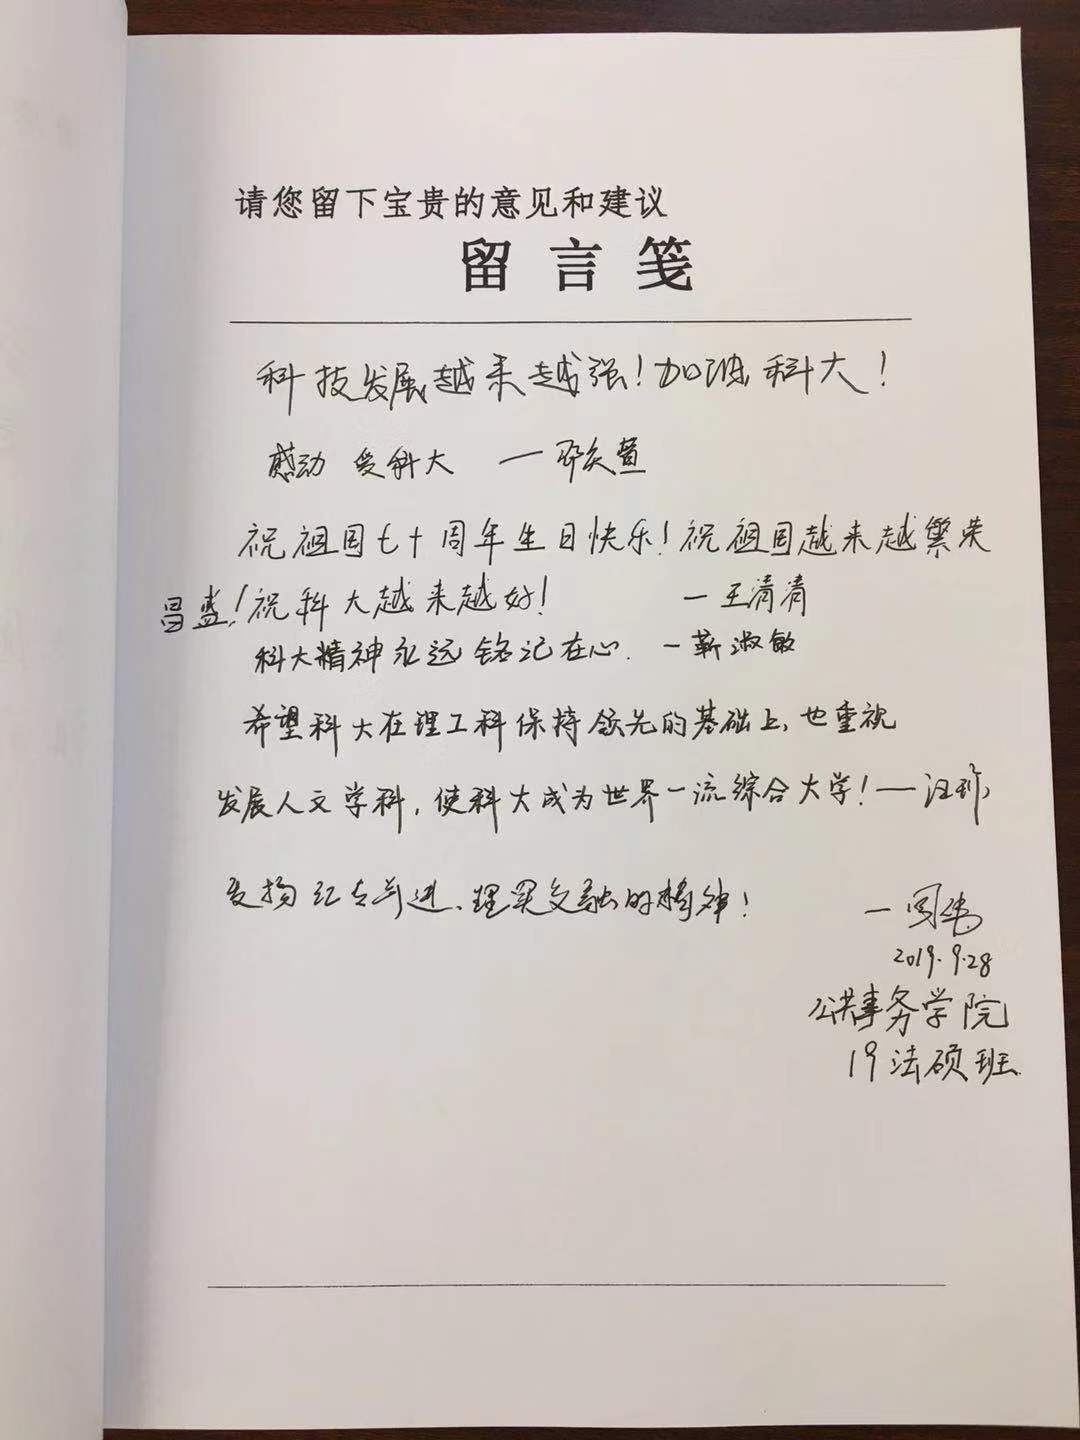 请您留下宝贵的意见和建议
留言笺
科技发展越来越强！加油科大！
感动 爱科大 —邓文萱
祝祖国七十周年生日快乐！祝祖国越来越繁荣
昌盛！祝科大越来越好！ —王清清
科大精神永远铭记在心. —靳淑敏
希望科大在理工科保持领先的基础上,也重视
发展人文学科,使科大成为世界一流综合大学！—汪珍
发扬红专并进、理实交融的精神！ —周伟
2019.9.28
公共事务学院
19法硕班